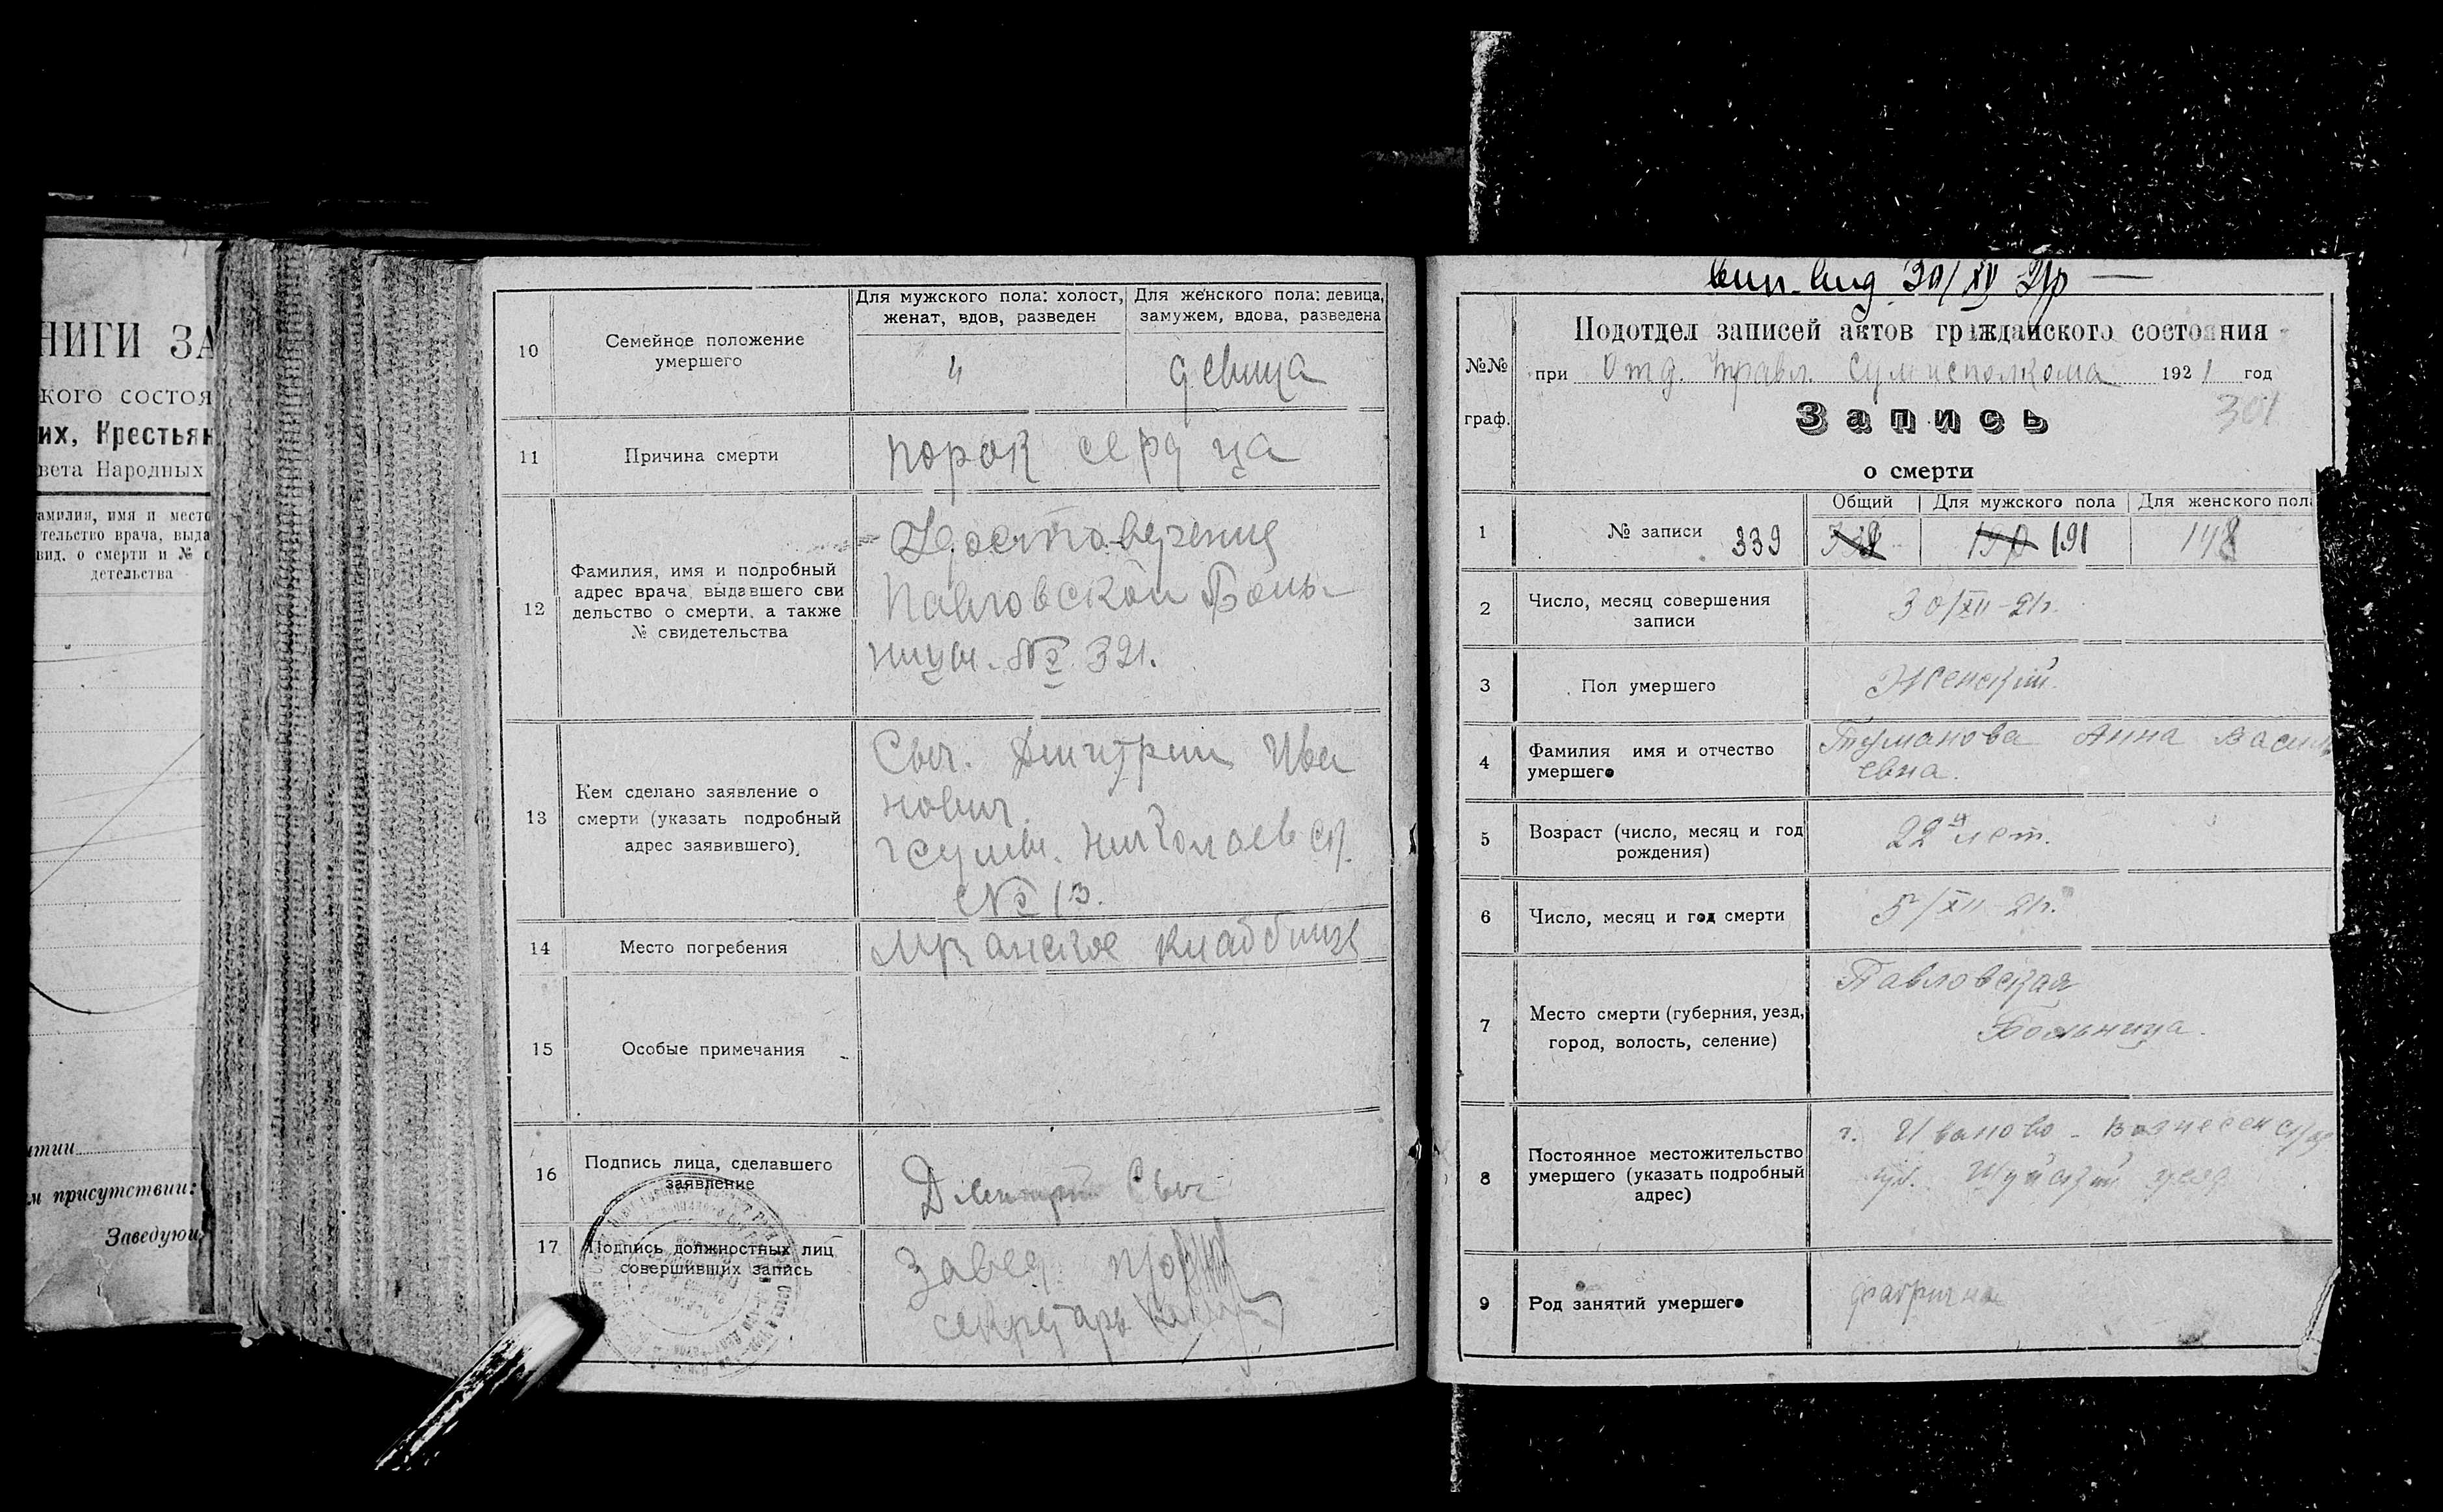 НИГИ ЗА
кого состоя
их, Крестьян
вета Народных
амилия, имя и место
тельство врача, выда
вид. о смерти и № с
детельства
итии
м присутствии:
Заведующ
10
Семейное положение
умершего
Для мужского пола: холост,
женат, вдов, разведен
Для женского пола: девица,
замужем, вдова, разведена
девица
11
Причина смерти
порок сердца
12
Фамилия, имя и подробный
адрес врача, выдавшего сви
дельство о смерти, а также
№ свидетельства
Удостоверения
Павловской Боль-
ницы. № 321.
13
Кем сделано заявление о
смерти (указать подробный
адрес заявившего)
Сыч. Дмитрий Ива
нович
г Сумы. Николаевск.
№ 13.
14
Место погребения
кладбище
15
Особые примечания
16
Подпись лица, сделавшего
заявление
Дмитрий Сыч
17
Подпись должностных лиц
совершивших запись
Завед.
секретарь
№№
граф.
Подотдел записей актов гражданского состояния
при Отд. Управл. Сумисполкома 1921 год
Запись
301
о смерти
1
№ записи 339
Общий
Для мужского пола
191
Для женского пола
148
2
Число, месяц совершения
записи
30/XII-21г.
3
Пол умершего
Женский
4
Фамилия имя и отчество
умершего
Туманова Анна Василь
евна.
5
Возраст (число, месяц и год
рождения)
22 лет.
6
Число, месяц и год смерти
5/XII-21г.
7
Место смерти (губерния, уезд,
город, волость, селение)
Павловская
Больница.
8
Постоянное местожительство
умершего (указать подробный
адрес)
г. Иваново-Вознесенская
губ. Шуйский уезд
9
Род занятий умершего